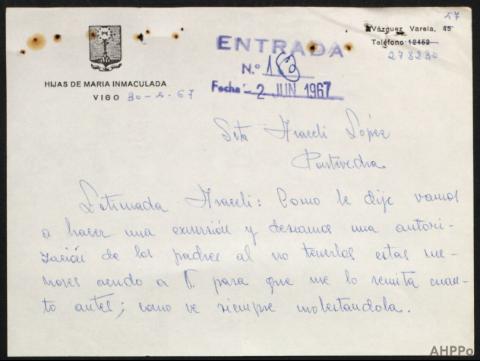 57
Vázquez Varela, 45
Teléfono 12452
278230
ENTRADA
N.º 18
Fecha: 2 JUN 1967
HIJAS DE MARIA INMACULADA
VIGO 30-5-67
Srta Araceli López
Pontevedra
Estimada Araceli: Como le dije vamos
a hacer una excursión y deseamos una autori-
zación de los padres al no tenerlos estas me-
nores acudo a V. para que me lo remita cuan-
to antes; como ve siempre molestandola.
AHPPo